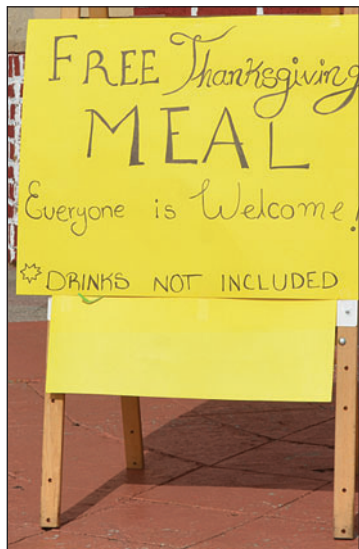 FREE Thanksgiving
MEAL
Everyone is Welcome.
DRINKS NOT INCLUDED